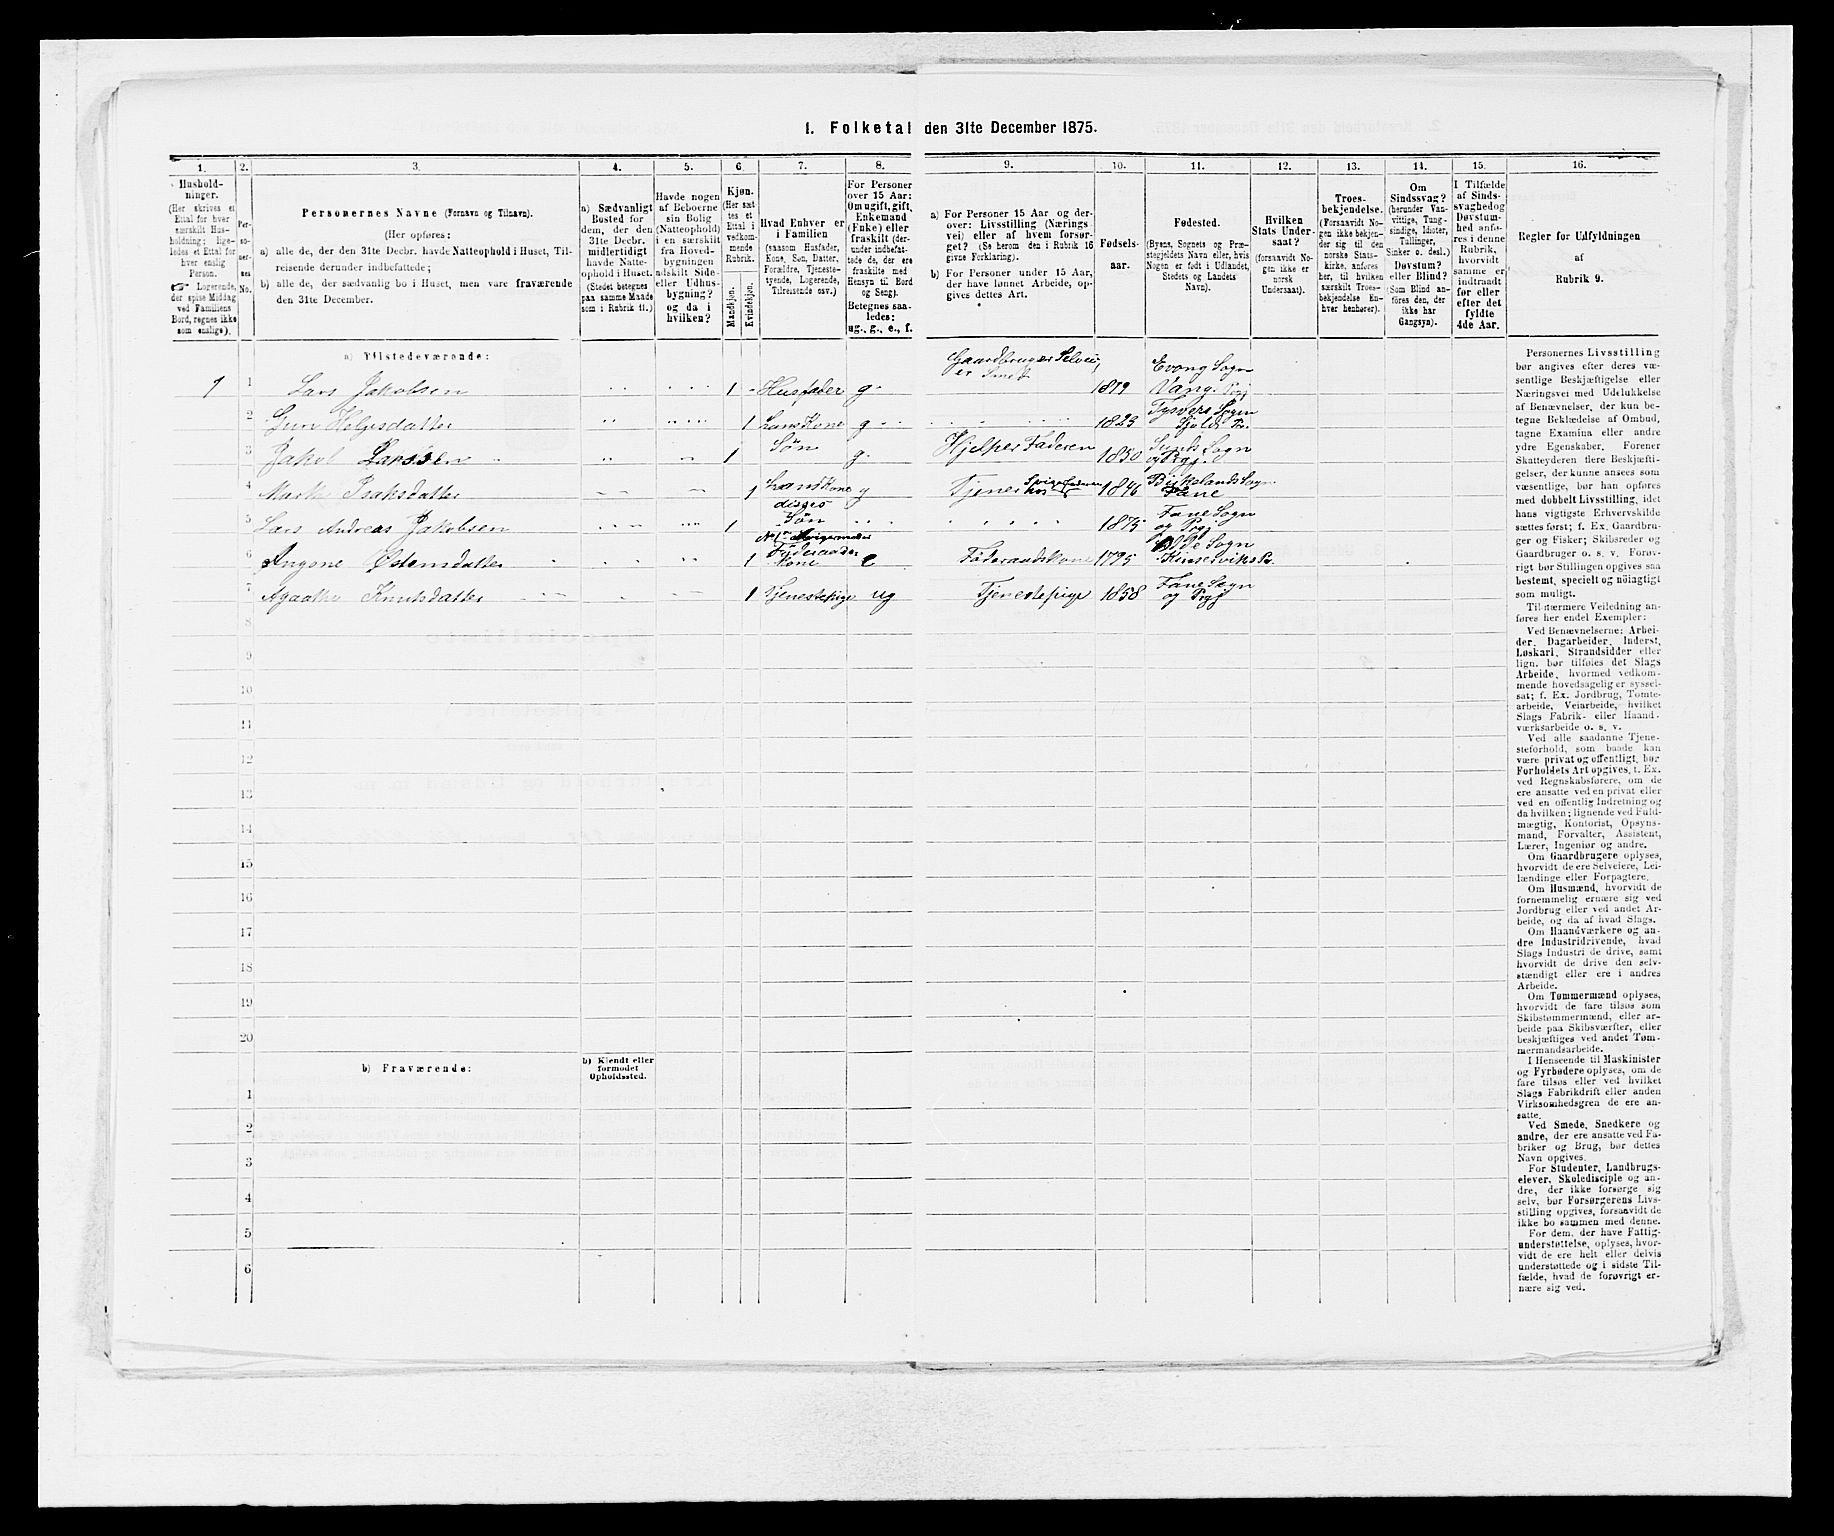 1. Folketal den 31te December 1875.
1. 2. 3. 4. 5. 6. 7. 8. 9. 10. 11. 12. 13. 14. 15. 16.
Hushold-
ninger.
(Her skrives et
Ettal for hver
særskilt Hus-
holdning; lige-
ledes et Ettal for
hver enslig
Person.
Logerende,
der spise Middag
ved Familiens
Bord, regnes ikke
som enslige).
Per-
so-
ner-
nes
No.
Personernes Navne (Fornavn og Tilnavn).
(Her opføres:
a) alle de, der den 31te Decbr. havde Natteophold i Huset, Til-
reisende derunder indbefattede;
b) alle de, der sædvanlig bo i Huset, men vare fraværende
den 31te December.
a) Sædvanligt
Bosted for
dem, der den
31te Decbr.
midlertidigt
havde Natte-
ophold i Huset.
(Stedet betegnes
paa samme Maade
som i Rubrik 11.)
Havde nogen
af Beboerne
sin Bolig
(Natteophold)
i en særskilt
fra Hoved-
bygningen
adskilt Side-
eller Udhus-
bygning?
og da i
hvilken?
Kjøn.
(Her sæt
tes et
Ettal i
vedkom-
mende
Rubrik.
Mandkjøn.
Kvindekjøn.
Hvad Enhver er
i Familien
(saasom Husfader,
Kone, Søn, Datter,
Forældre, Tjeneste-
tyende, Logerende,
Tilreisende osv.)
For Personer
over 15 Aar:
Om ugift, gift,
Enkemand
(Enke) eller
fraskilt (der-
under indbefat-
tede de, der ere
fraskilte med
Hensyn til Bord
og Seng).
Betegnes saa-
ledes:
ug., g., e., f.
a) For Personer 15 Aar og der-
over: Livsstilling (Nærings
vei) eller af hvem forsør-
get? (Se herom den i Rubrik 16
givne Forklaring).
b) For Personer under 15 Aar,
der have lønnet Arbeide, op-
gives dettes Art.
Fødsels-
aar.
Fødested.
(Byens, Sognets og Præ-
stegjeldets Navn eller, hvis
Nogen er født i Udlandet,
Stedets og Landets
Navn).
Hvilken
Stats Under-
saat?
(forsaavidt No-
gen ikke er
norsk
Undersaat).
Troes-
bekjendelse.
(Forsaavidt No-
gen ikke bekjen-
der sig til den
norske Stats-
kirke, anføres
her, til hvilken
særskilt Troes-
bekjendelse En-
hver henhører).
Om
Sindssvag?
(herunder Van-
vittige, Tung-
sindige, Idioter,
Tullinger,
Sinker o. desl.)
Døvstum?
eller Blind?
(Som Blind an-
føres den, der
ikke har
Gangsyn).
I Tilfælde
af Sinds-
svaghed og
Døvstum-
hed anfø-
res i denne
Rubrik,
hvorvidt
samme er
indtraadt
før eller
efter det
fyldte
4de Aar.
Regler for Udfyldningen
af
Rubrik 9.
a) Tilstedeværende:
1 1 Lars Jakobsen 1 Husfader g. Gaardbruger Selvei, er Smed 1819 Sogn Vang. Prgj
2 Guri Helgesdatter 1 Hans Kone g 1823 Tysvers Sogn Sjolds Pr.
3 Jakob Larssen 1 Søn g. Hjelper Faderen 1850 Sunds Sogn og Prgj.
4 Marthe Isaksdatter 1 Hans Kone g Tjener hos Svigerfaderen 1846 Sogn Fane
5 Lars Andreas Jakobsen 1 disses Søn 1875 Fane Sogn og Prgj
6 Angone 1 No 1s Svigermoder Føderaads Kone e Føderaadskone 1795 Sogn Kinservik Pr.
7 Agaathe Knutsdatter 1 Tjenestepige ug Tjenestepige 1858 Fane Sogn og Prgj
8
9
10
11
12
13
14
15
16
17
18
19
20
b) Fraværende:
b) Kjendt eller
formodet
Opholdssted.
1
2
3
4
5
6
Personernes Livsstilling
bør angives efter deres væ-
sentlige Beskjæftigelse eller
Næringsvei med Udelukkelse
af Benævnelser, der kun be-
tegne Beklædelse af Ombud,
tagne Examina eller andre
ydre Egenskaber. Forener
Skatteyderen flere Beskjæfti-
gelser, der kunne ansees som
væsentlige, bør han opføres
med dobbelt Livsstilling, idet
hans vigtigste Erhvervskilde
sættes først; f. Ex. Gaardbru-
ger og Fisker; Skibsreder og
Gaardbruger o. s. v. Forøv-
rigt bør Stillingen opgives saa
bestemt, specielt og nøiagtigt
som muligt.
Til nærmere Veiledning an-
føres her endel Exempler:
Ved Benævnelserne: Arbei-
der, Dagarbeider, Inderst,
Løskarl, Strandsidder eller
lign. bør tilføies det Slags
Arbeide, hvormed vedkom-
mende hovedsagelig er syssel-
sat; f. Ex. Jordbrug, Tomte-
arbeide, Veiarbeide, hvilket
Slags Fabrik- eller Haand-
værksarbeide o. s. v.
Ved alle saadanne Tjene-
steforhold, som baade kan
være privat og offentligt, bør
Forholdets Art opgives, t. Ex.
ved Regnskabsførere, om de
ere ansatte ved en privat eller
ved en offentlig Indretning og
da hvilken; lignende ved Fuld-
mægtig, Kontorist, Opsyns-
mand, Forvalter, Assistent,
Lærer, Ingeniør og andre.
Om Gaardbrugere oplyses,
hvorvidt de ere Selveiere, Lei-
lændinge eller Forpagtere.
Om Husmænd, hvorvidt de
fornemmelig ernære sig ved
Jordbrug eller ved andet Ar-
beide, og da af hvad Slags.
Om Haandværkere og an-
dre Industridrivende, hvad
Slags Industri de drive, samt
hvorvidt de drive den selv-
stændigt eller ere i andres
Arbeide.
Om Tømmermænd oplyses,
hvorvidt de fare tilsøs som
Skibstømmermænd, eller ar-
beide paa Skibsværfter, eller
beskjæftiges ved andet Tøm-
mermandsarbeide.
I Henseende til Maskinister
og Fyrbødere oplyses, om de
fare tilsøs eller ved hvilket
Slags Fabrikdrift eller anden
Virksomhedsgren de ere an-
satte.
Ved Smede, Snedkere og
andre, der ere ansatte ved Fa-
briker og Brug, bør dettes
Navn opgives.
For Studenter, Landbrugs-
elever, Skoledisciple og an-
dre, der ikke forsørge sig
selv, bør Forsørgerens Livs-
stilling opgives, forsaavidt de
ikke bo sammen med denne.
For dem, der have Fattig-
understøttelse, oplyses, hvor-
vidt de ere helt eller delvis
understøttede og i sidste Til-
fælde, hvad de forøvrigt er-
nære sig ved.